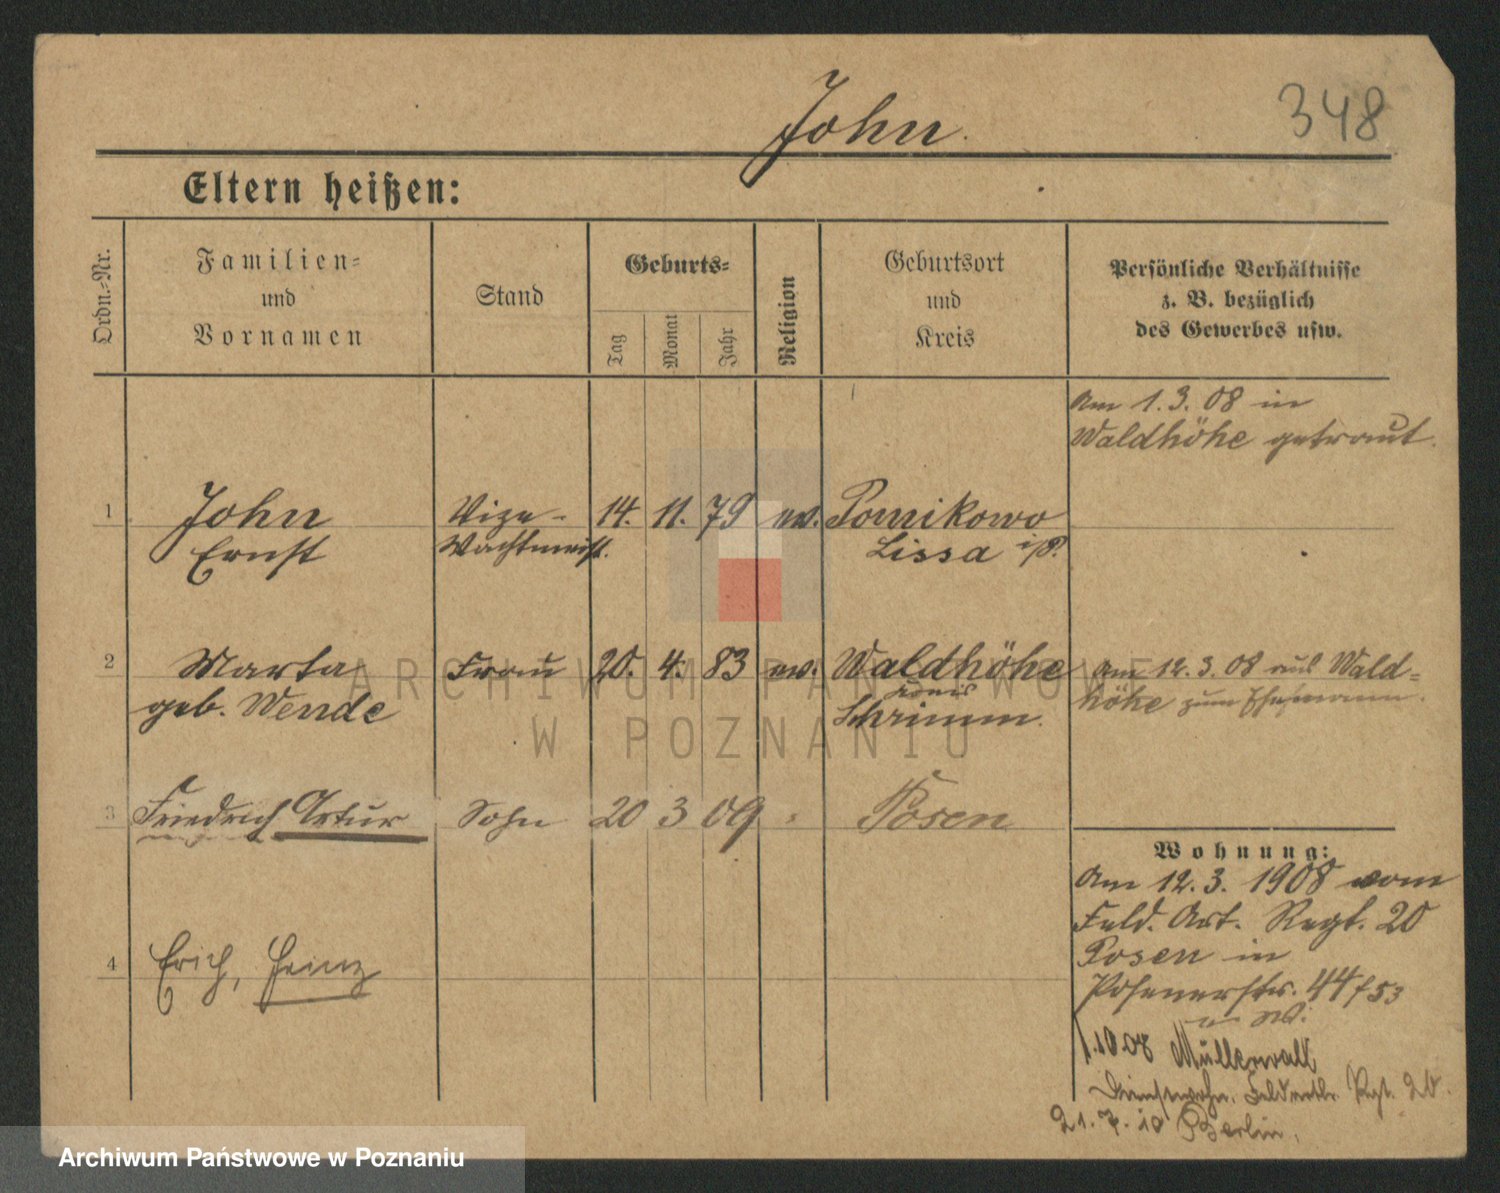 John.
348
Eltern heißen:
Ordn.-Nr.
Familien-
und
Vornamen
Stand
Geburts-
Tag
Monat
Jahr
Religion
Geburtsort
und
Kreis
Persönliche Verhältnisse
z. B. bezüglich
des Gewerbes usw.
Am 1. 3. 08 in
Waldhöhe getraut.
1
John
Ernst
Vize-
Wachtmeist.
14. 11. 79
ev.
Pomikowo
Lissa i/P.
2
Marta
geb. Wende
Frau
20. 4. 83
ev.
Waldhöhe
Kreis
Schrimm.
Am 12. 3. 08 aus Wald-
höhe zum Ehemann.
3
Friedrich Artur
Sohn
20 3 09
Posen
4
Erich, Heinz
Wohnung:
Am 12. 3. 1908 vom
Feld. Art. Regt. 20
Posen in
Posenerstr. 44/53
1.10.08 Müllerwall
Dienstwohn. Feldartlr. Rgt. 20.
21. 7. 10 Berlin.
ARCHIWUM PAŃSTWOWE
W POZNANIU
Archiwum Państwowe w Poznaniu